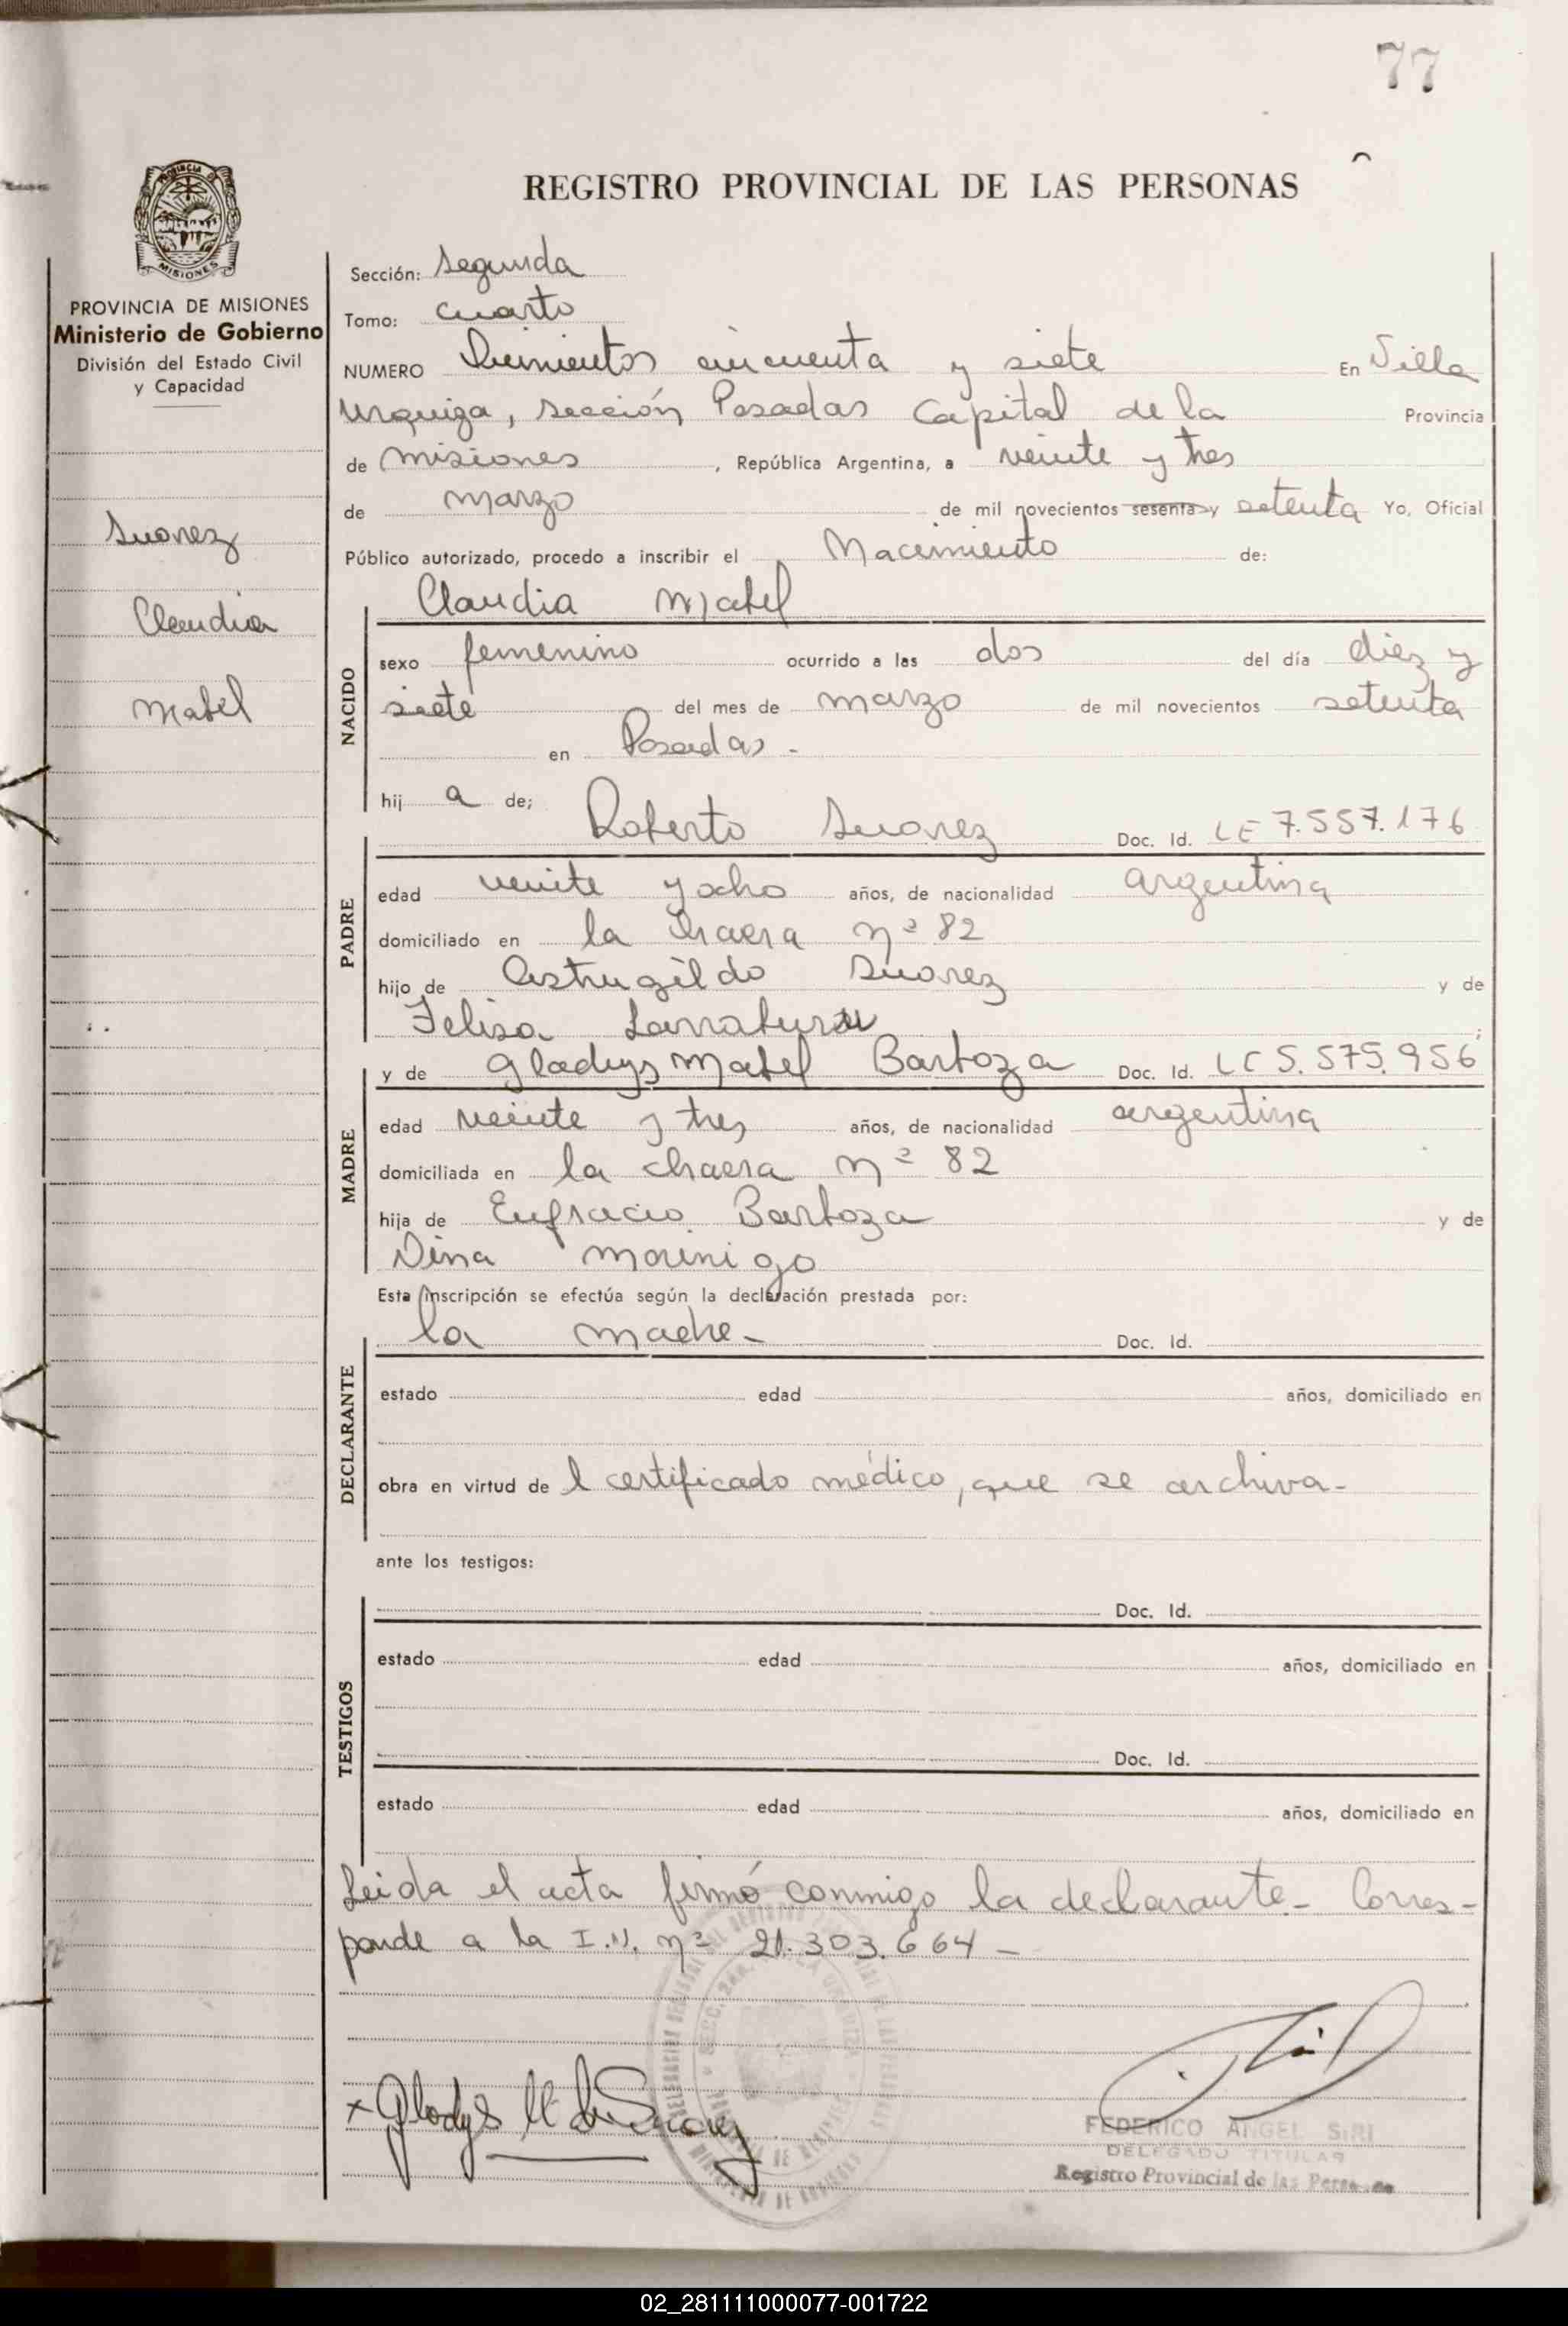 77
REGISTRO PROVINCIAL DE LAS PERSONAS
PROVINCIA DE
MISIONES
PROVINCIA DE MISIONES
Ministerio de Gobierno
División del Estado Civil
y Capacidad
Suarez
Claudia
Mabel
Sección: segunda
Tomo: cuarto
NUMERO Quinientos cincuenta y siete En Villa
Urquiza, sección Posadas Capital de la Provincia
de Misiones, República Argentina, a veinte y tres
de marzo de mil novecientos sesenta y setenta Yo, Oficial
Público autorizado, procedo a inscribir el Nacimiento de:
Claudia Mabel
NACIDO
sexo femenino ocurrido a las dos del día diez y
siete del mes de marzo de mil novecientos setenta
en Posadas.-
hij a de;
Roberto Suarez Doc. Id. LE 7.557.176
PADRE
edad veinte y ocho años, de nacionalidad argentina
domiciliado en la chacra nº 82
hijo de Astrugildo Suarez y de
Felisa
y de Gladys Mabel Bartoza Doc. Id. LC 5.575.956
MADRE
edad veinte y tres años, de nacionalidad argentina
domiciliada en la chacra nº 82
hija de Eufracio Bartoza y de
Dina Morinigo
Esta inscripción se efectúa según la declaración prestada por:
la madre- Doc. Id.
DECLARANTE
estado edad años, domiciliado en
obra en virtud de l certificado médico, que se archiva-
ante los testigos:
Doc. Id.
TESTIGOS
estado edad años, domiciliado en
Doc. Id.
estado edad años, domiciliado en
Leida el acta firmó conmigo la declarante- Corres-
ponde a la I.N. nº 21.303.664-
x Gladys M de Suarez
FEDERICO ANGEL SIRI
DELEGADO TITULAR
Registro Provincial de las Personas
02_281111000077-001722